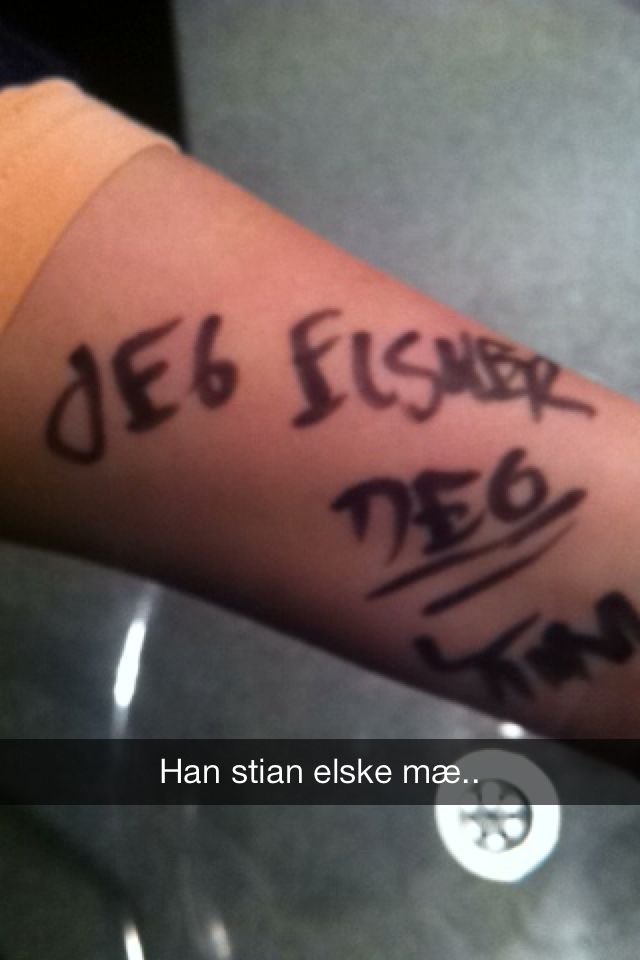 JEG ELSKER
DEG
Han stian elske mæ..